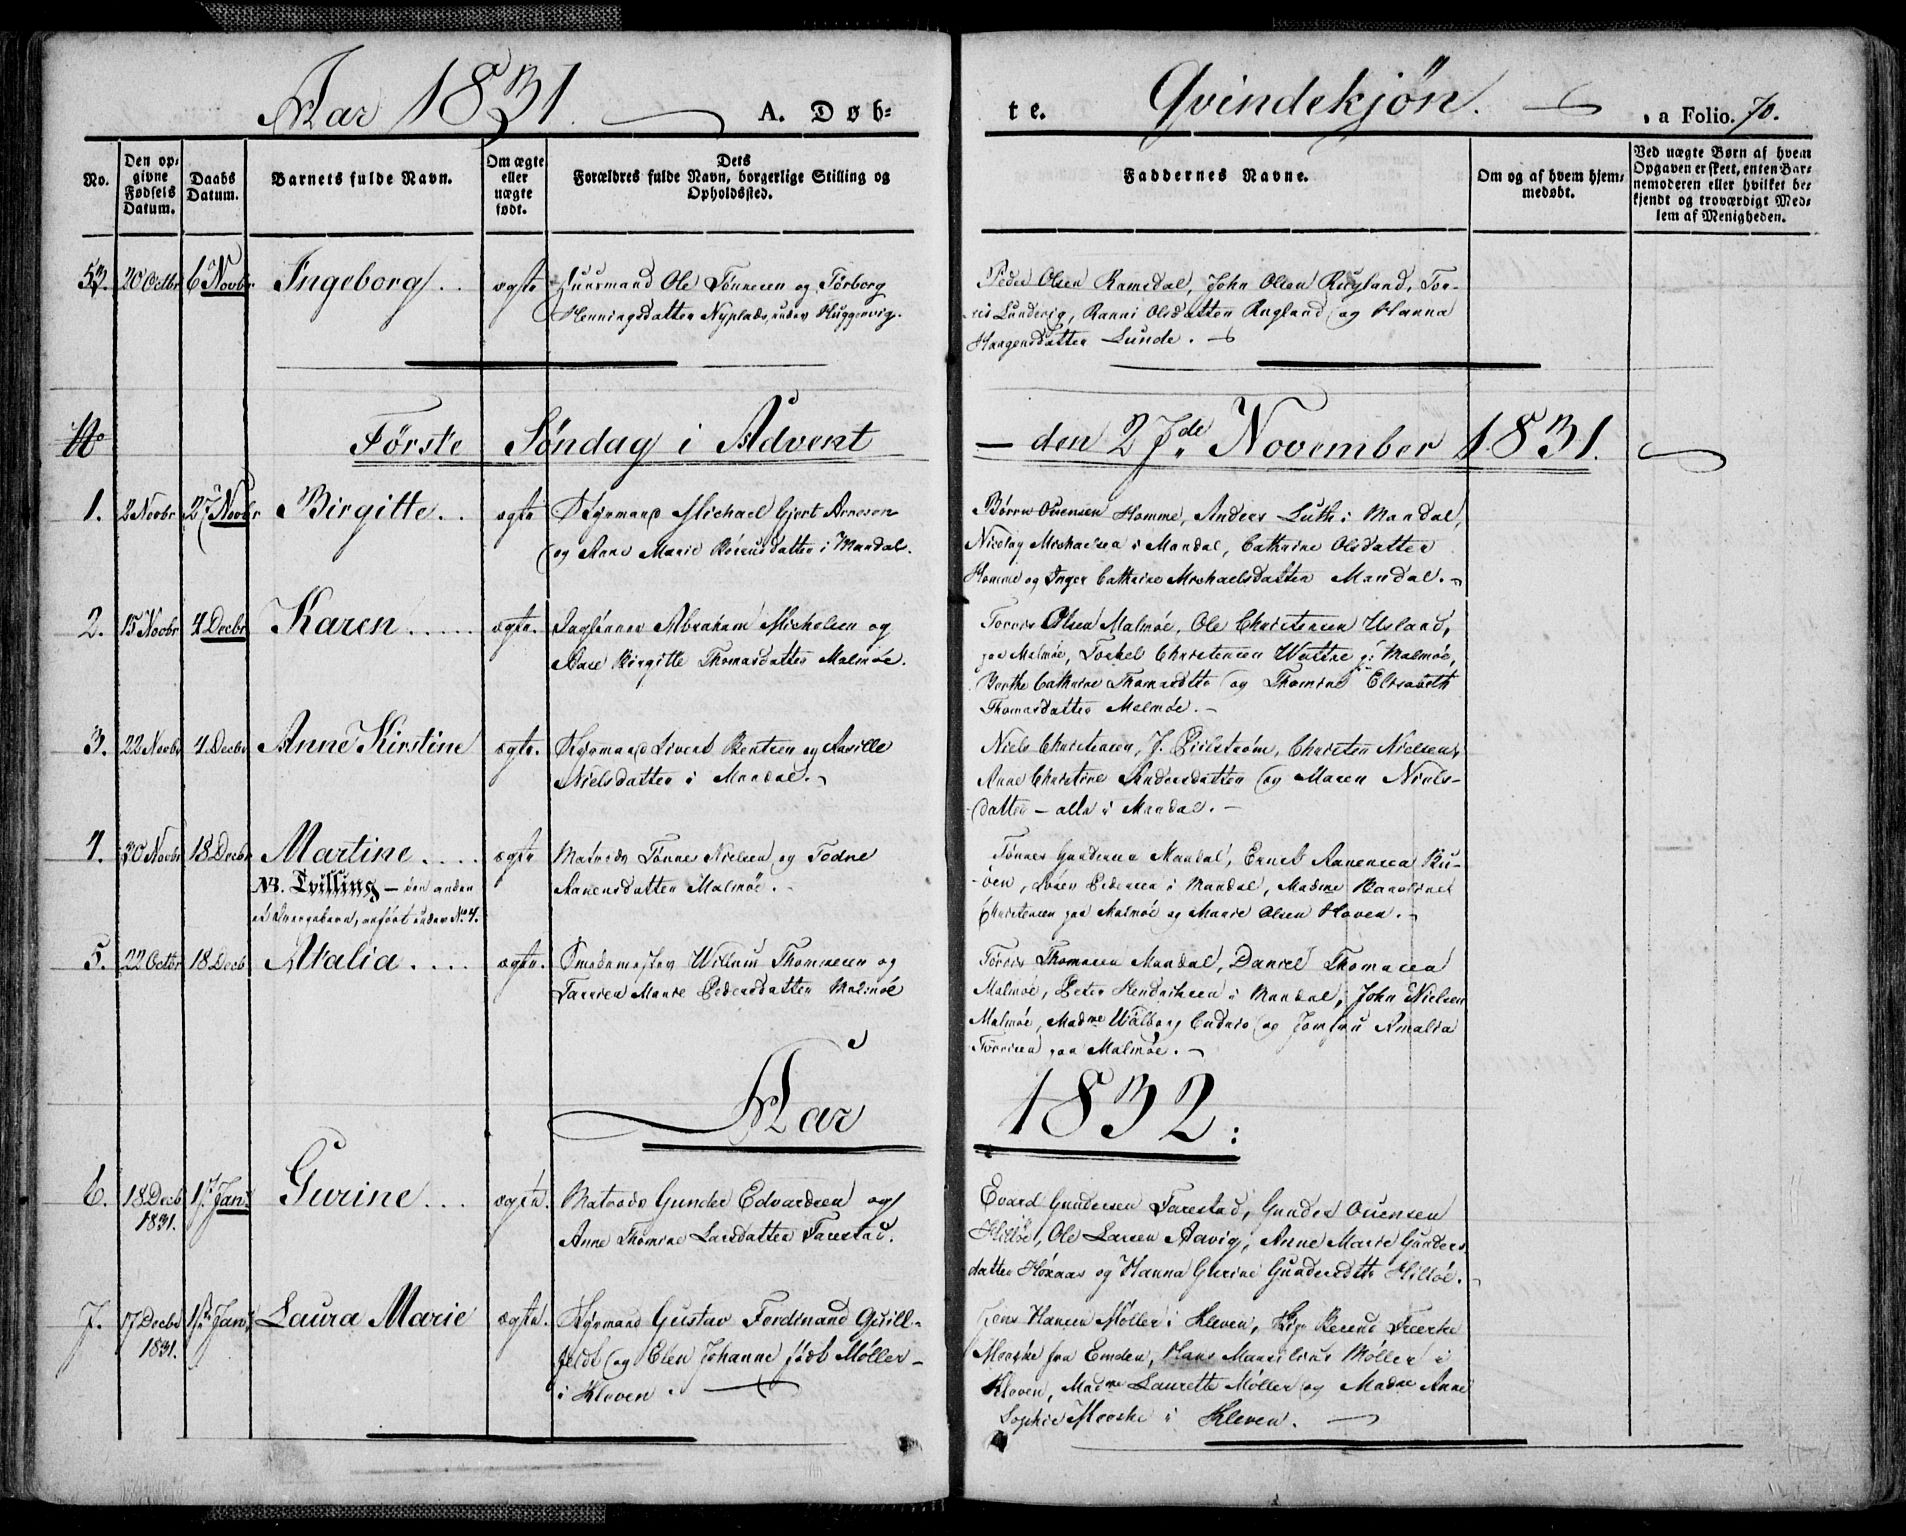 Aar 1831. A. Døb-
te. Qvindekjøn. , a Folio. 70.
No.
Den opgivne Fødsels Datum.
Daabs Datum.
Barnets fulde Navn.
Om ægte eller uægte født.
Dets Forældres fulde Navn, borgerlige Stilling og Opholdssted.
Faddernes Navne.
Om og af hvem hjemmedøbt.
Ved uægte Børn af hvem Opgaven er skeet, enten Barnemoderen eller hvilket bekjendt og troværdigt Medlem af Menigheden.
53. 20 Octbr 6 Novbr Ingeborg. ægte Huusmand Ole Tønnesen og Torborg
Henningsdatter Nyplads, under Huggenvig.
Peder Olsen Ramsdal, John Olsen Rugland, Tor-
Lundevig, Ranni Olsdatter Rugland og Hanna
Haagensdatter Lunde.
No
Første Søndag i Advent
den 27de November 1831.
1. 2 Novbr 27 Novbr Birgitte. ægte Styrmand Michael Gjert Arnesen
og Anne Marie Børresdatter i Mandal.
Børre Ouensen Homme, Anders Luth i Mandal,
Nicolay Michaelsen i Mandal, Cathrine Olsdatter
Homme og Inger Cathrine Michaelsdatter Mandal.
2. 15 Novbr 4 Decbr Karen ægte. Daglønner Abraham Michelsen og
Birgitte Thomasdatter Malmøe.
Torris Olsen Malmøe, Ole Christensen Usland,
paa Malmøe, Torkel Christensen på Malmøe,
Berthe Cathrine Thomasdttr og Thomine Elisabeth
Thomasdatter Malmøe.
3. 22 Novbr 4 Decbr Anne Kirstine ægte. Styrmand Sivert Bentsen og
Nielsdatter i Mandal.
Niels Christensen, J. Christen Nielsen,
Anne Christine Andersdatter og Maren Niels-
datter - alle i Mandal.
4. 20 Novbr 18 Decbr Martine ægte Matrods Tønnes Nielsen og Todne
Aanensdatter Malmøe.
NB. Tvilling - den anden
et Drengebarn, anført under No 4.
Tønnes Gundersen Mandal, Ernst Aanensen Bu-
øen, Peder Pedersen i Mandal, Madme Karoline
Christensen paa Malmøe og Marie Olsen Hoven.
5. 22 Octbr 18 Decb Atalia ægte. Smedemester Willum Thomesen og
Marie Pedersdatter Malmøe
Torris Thomasen Mandal, Daniel Thomasen
Malmøe, Peter Hendrichsen i Mandal, John Nielsen
Malmøe, Madme Walborg og Jomfru Amalia
paa Malmøe.
Aar
1832:
6. 18 Decb 1831. 1ste Jan: Gurine ægte. Matrods Gunder Edvardsen og
Anne Thomine Larsdatter Farestad.
Evard Gundersen Farestad, Gunder Ouensen
Hilløe, Ole Larsen Aavig, Anne Marie Gunders-
datter Hoxaas og Hanna Gurine Gundersdttr Hilløe.
7. 17 Decbr 1831. 1ste Jan: Laura Marie ægte. Styrmand Gustav Ferdinand Quill-
feldt og Elen Johanne født Møller
i Kleven.
Jens Hansen Møller i Kleven, Berend
fra Emden, Hans Møller i
Kleven, Madme Laurette Møller og Madme Anne
Sophie i Kleven.